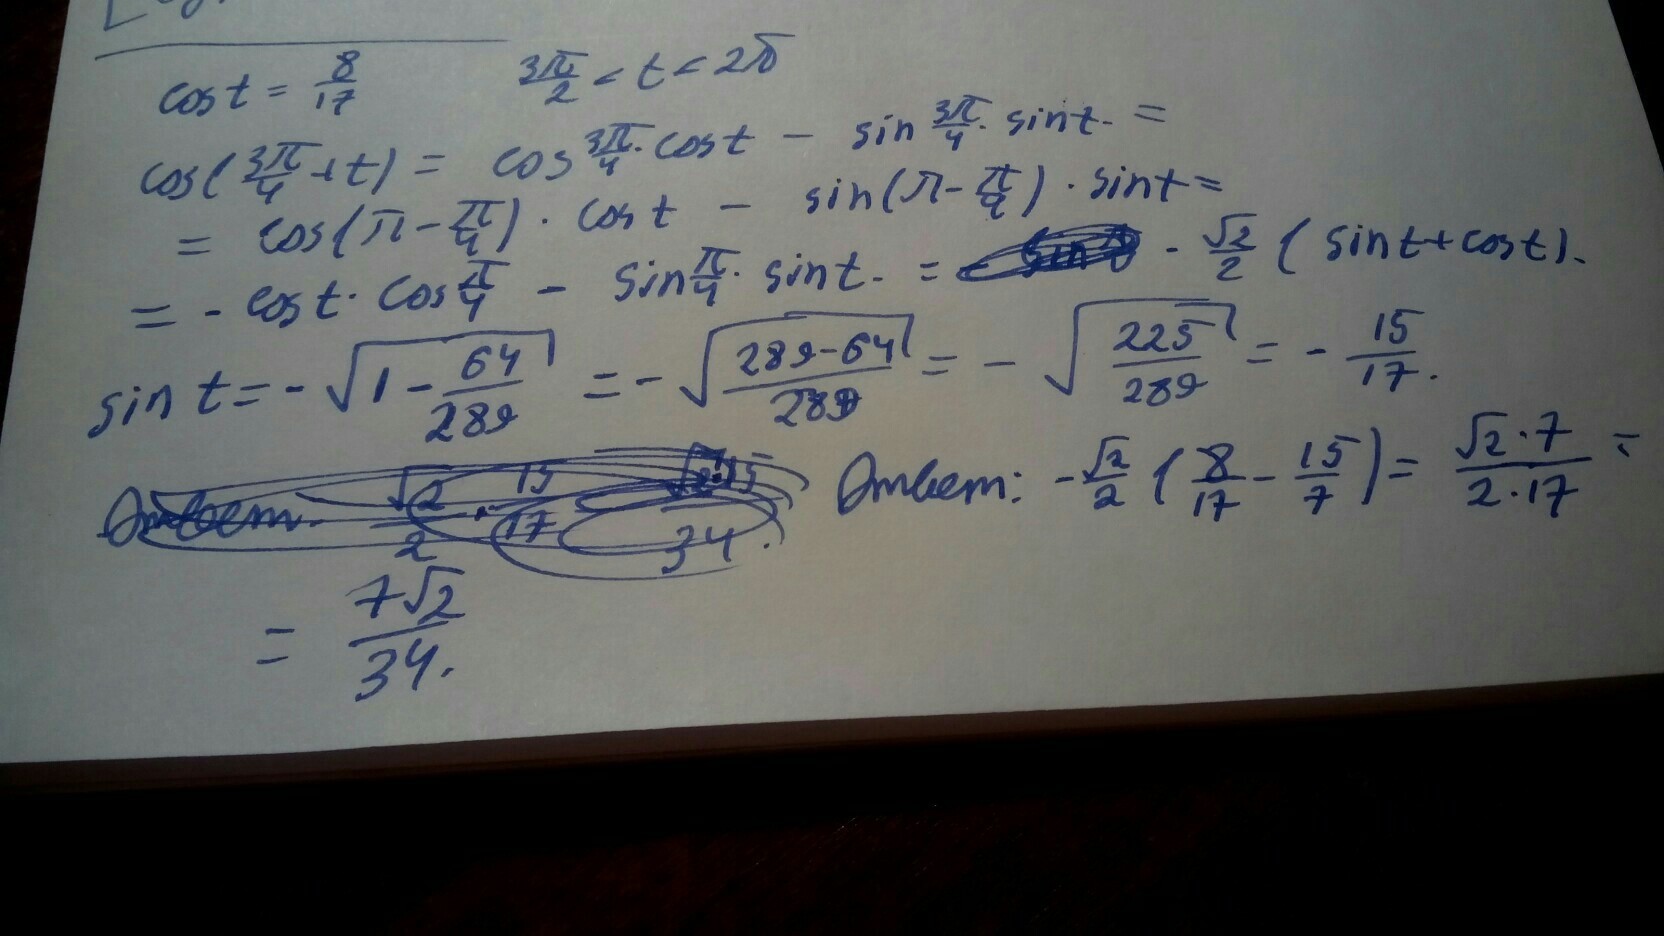 cos t = 8/17   3π/2 < t < 2π
cos(3π/4 + t) = cos 3π/4 · cos t − sin 3π/4 · sin t. =
= cos(π − π/4) · cos t − sin(π − π/4) · sin t =
= - cos t · cos π/4 − sin π/4 · sin t. = - √2/2 (sin t + cos t).
sin t = -√(1 − 64/289) = -√((289−64)/289) = -√(225/289) = - 15/17.
Ответ: -√2/2 (8/17 − 15/7) = (√2 · 7)/(2 · 17) =
= 7√2/34.